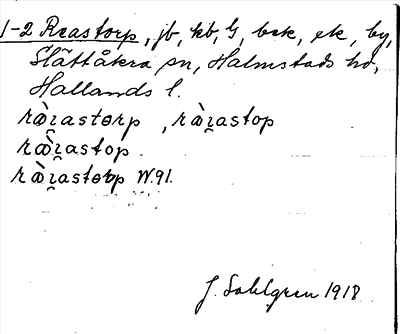 1-2 Reastorp, jb, kb, G, bsk, ek, by,
Slättåkra sn, Halmstads hd,
Hallands l.
ræ̀i̯astorp , ræ̀i̯astop
ræ̀i̯astop
ræ̀i̯astorp W.91.
J. Sahlgren 1918